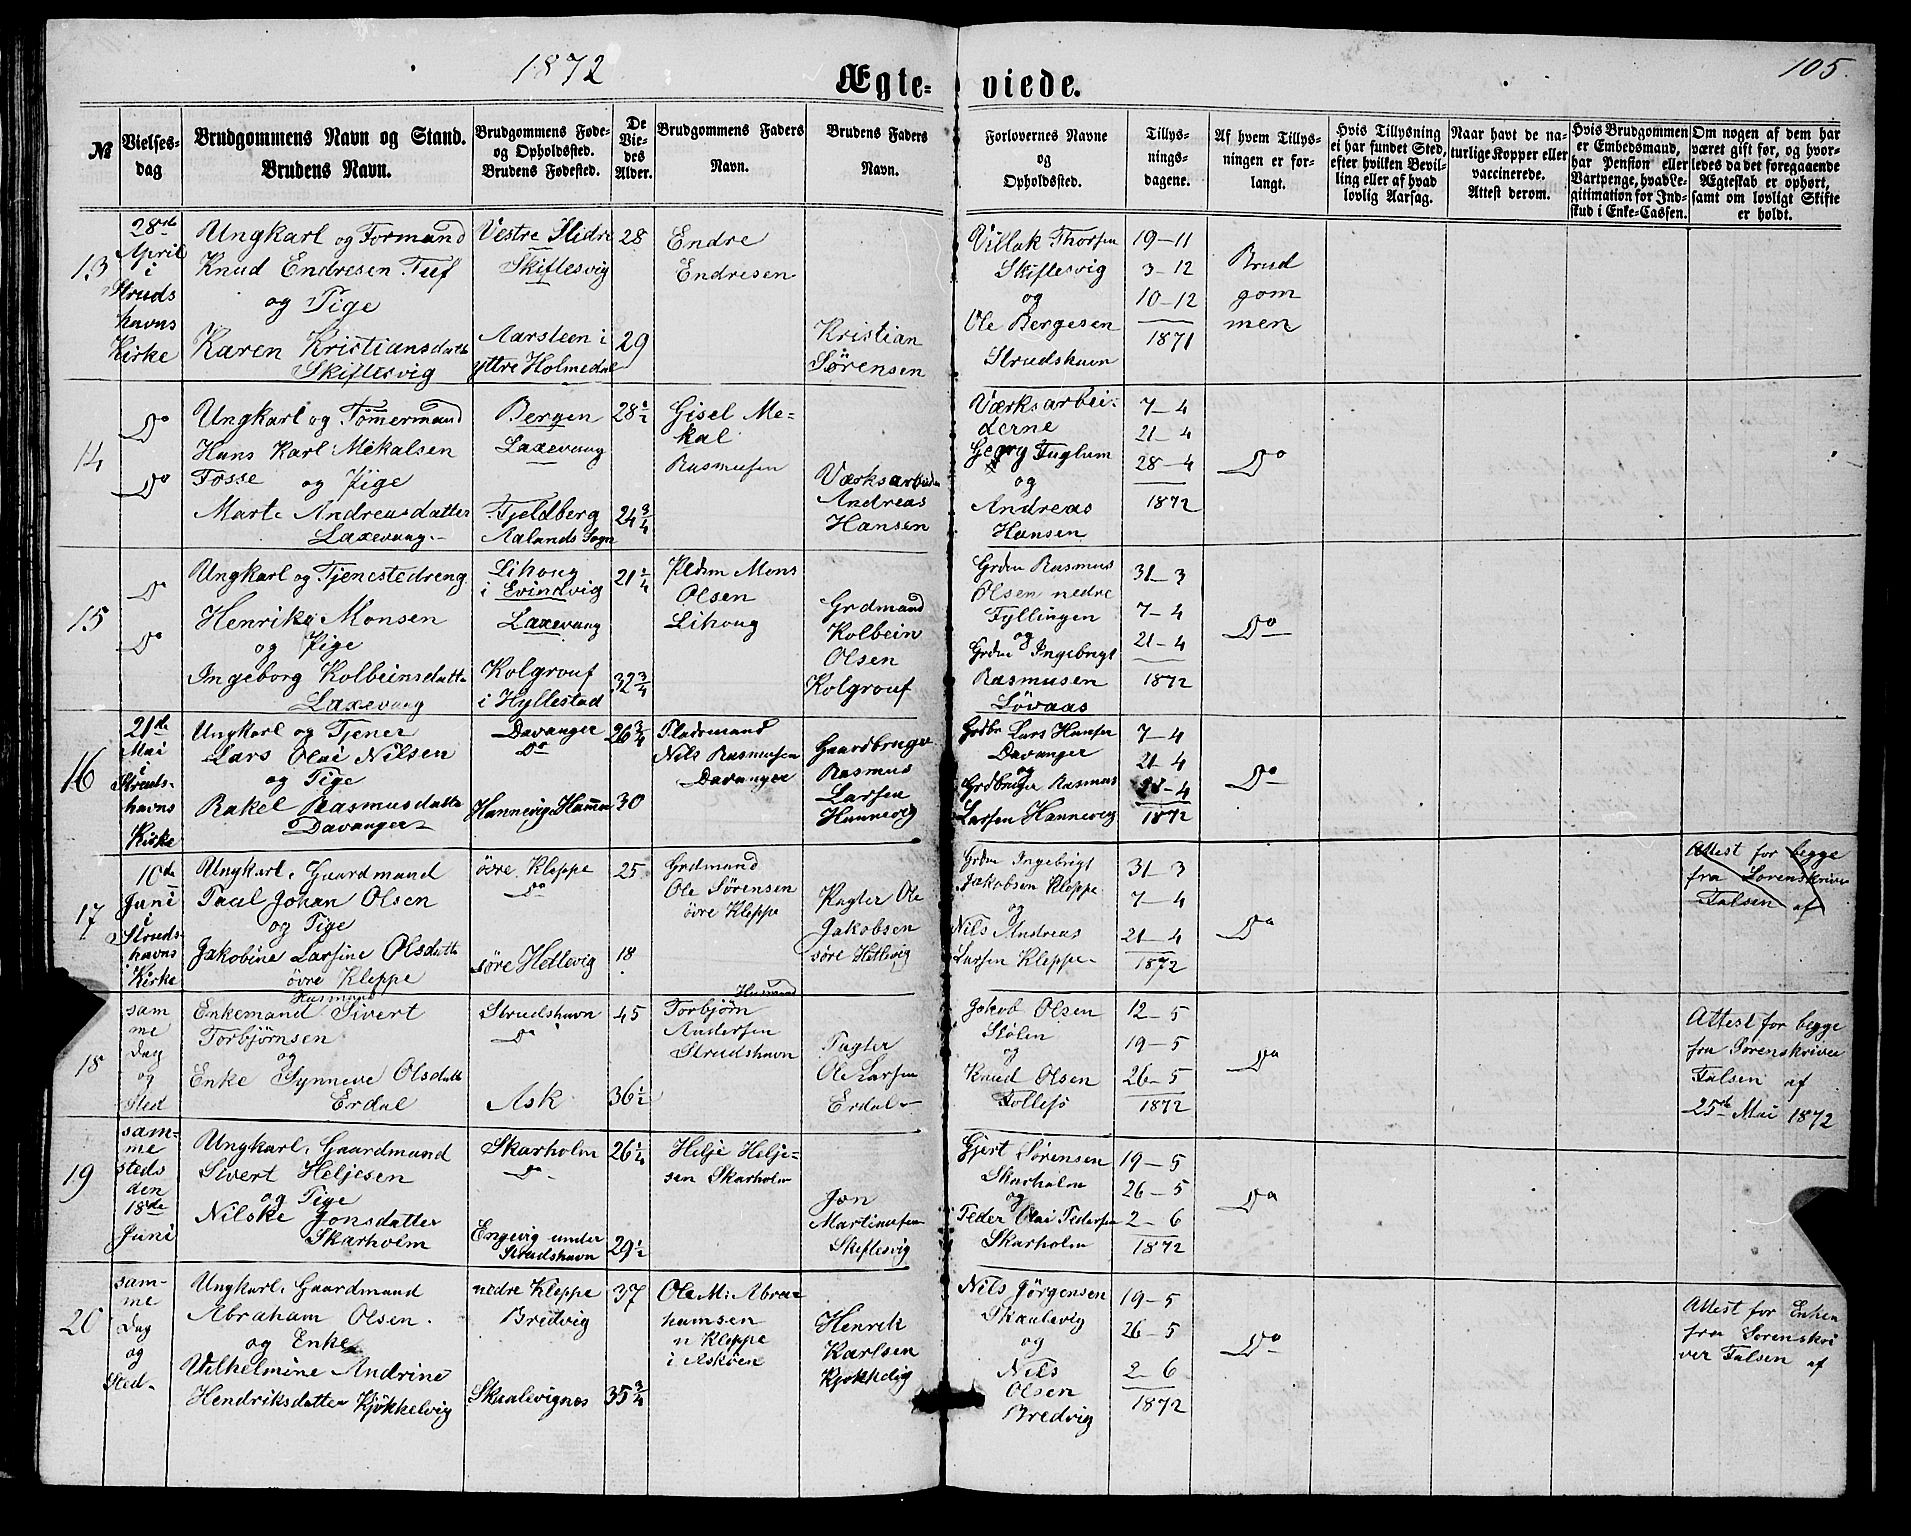 1872
105.
Ægte-viede.
№
Vielses-
dag
Brudgommens Navn og Stand.
Brudens Navn.
Brudgommens Føde-
og Opholdssted.
Brudens Fødested.
De
Vie-
des
Alder.
Brudgommens Faders
Navn.
Brudens Faders
Navn.
Forlovernes Navne
og
Opholdssted.
Tillys-
nings-
dagene.
Af hvem Tillys-
ningen er for-
langt.
Hvis Tillysning
ei har fundet Sted,
efter hvilken Bevil-
ling eller af hvad
lovlig Aarsag.
Naar havt de na-
turlige Kopper eller
vaccinerede.
Attest derom.
Hvis Brudgommen
er Embedsmand,
har Pension eller
Vartpenge, hvad Le-
gitimation for Ind-
skud i Enke-Cassen.
Om nogen af dem har
været gift før, og hvor-
ledes da det foregaaende
Ægteskab er ophørt,
samt om lovligt Skifte
er holdt.
13
28de
April
i
Struds
havns
Kirke
Ungkarl og Formand
Knud Endresen Tuf
og Pige
Karen Kristiansdatte
Skiftesvig
Vestre Slidre
Skiftesvig
Aarsteen i
yttre Holmedal
28
29
Endre
Endresen
Kristian
Sørensen
Villak Thorsen
Skiftesvig
og
Ole Bergesen
Strudshavn
19-11
3-12
10-12
1871
Brud
gom
men
14
Do
Do
Ungkarl og Tømmermand
Hans Karl Mikalsen
Fosse og Pige
Marte Andreasdatter
Laxevaag
Bergen
Laxevaag
Fjeldberg
Aalands Sogn
28½
24¾
Gisel Me-
kal
Rasmusen
Værksarbeider
Andreas
Hansen
Værksarbei-
derne
Georg Fuglum
og
Andreas
Hansen
7-4
21-4
28-4
1872
Do
15
Do
Do
Ungkarl og Tjenestedreng
Henrik Monsen
og Pige
Ingeborg Kolbeinsdatte
Laxevaag
Lihoug
i Evindvig
Laxevaag
Kolgrouf
i Hyllestad
21¼
32¾
Pldsm Mons
Olsen
Lihoug
Grdmand
Kolbein
Olsen
Kolgrouf
Grdm Rasmus
Olsen nedre
Fyllingen
og
Grdm Ingebrigt
Rasmusen
Søvaas
31-3
7-4
21-4
1872
Do
16
21de
Mai
i
Struds-
havns
Kirke
Ungkarl og Tjener
Lars Olai Nilsen
og Pige
Rakel Rasmusdatte
Davanger
Davanger
Do
Hannevig Hammer
26¾
30
Pladsmand
Nils Rasmusen
Davanger
Gaardbruger
Rasmus
Larsen
Hannevig
Grdbr Lars Hansen
Davanger
og
Grdbruger Rasmus
Larsen Hannevig
7-4
21-4
28-4
1872
Do
17
10de
Juni
i
Struds-
havns
Kirke
Ungkarl, Gaardmand
Paul Johan Olsen
og Pige
Jakobine Larsine Olsdatte
øvre Kleppe
øvre Kleppe
Do
søre Hetlevig
25
18
Grdmand
Ole Sørensen
øvre Kleppe
Ole
Jakobsen
søre Hetlevig
Grdm Ingebrigt
Jakobsen Kleppe
og
Nils Andreas
Larsen Kleppe
31-3
7-4
21-4
1872
Do
Attest for begge
fra Sorenskriver
Falsen af
18
sam
me
Dag
og
Sted
Husmand
Enkemand Sivert
Torbjørnsen
og
Enke Synneve Olsdatte
Erdal
Strudshavn
Do
Ask
45
36½
Husmand
Torbjørn
Andersen
Strudshavn
Ole Larsen
Erdal
Jakob Olsen
Stølen
og
Knud Olsen
Follesø
12-5
19-5
26-5
1872
Do
Attest for begge
fra Sorenskriver
Falsen af
25de Mai 1872
19
sam-
me
steds
den
18de
Juni
Ungkarl, Gaardmand
Sivert Heljesen
og Pige
Nilske Jonsdatter
Skarholm
Skarholm
Do
Engevig under
Strudshavn
26¼
29½
Helje Helje-
sen Skarholm
Jon
Martinusen
Skiftesvig
Gjert Sørensen
Skarholm
og
Peder Olai Pedersen
Skarholm
19-5
26-5
2-6
1872
Do
20
sam-
me
Dag
og
Sted
Ungkarl, Gaardmand
Abraham Olsen
og Enke
Vilhelmine Andrine
Hendriksdatter Kjøkkelvig
nedre Kleppe
Bredvig
Skaalevignes
37
35¾
Ole M. Abra-
hamsen
n Kleppe
i Askøen
Henrik
Karlsen
Nils Jørgensen
Skaalevig
og
Nils
Olsen
Bredvig
19-5
26-5
2-6
1872
Do
Attest for Enken
fra Sorenskri
ver Falsen af